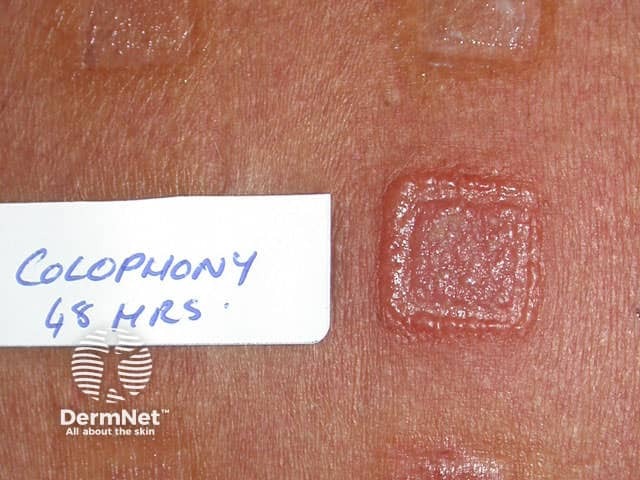 COLOPHONY
48 HRS.
DermNet™
All about the skin